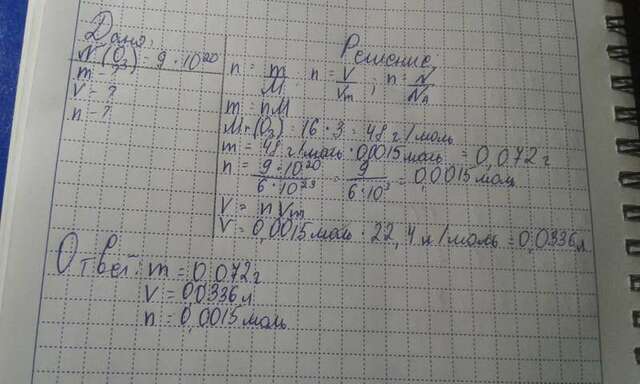 Дано:
N(O₃) = 9 · 10²⁰
m - ?
V - ?
n - ?
Решение:
n = m/M ; n = V/Vm ; n = N/Nₐ
m nM
M(O₃) 16 · 3 = 48 г/моль
m = 48 г/моль · 0,0015 моль = 0,072 г
n = 9 · 10²⁰ / 6 · 10²³ = 9 / 6 · 10³ = 0,0015 моль
V = n Vm
V = 0,0015 моль 22,4 л/моль = 0,0336 л
Ответ: m = 0,072 г
V = 0,0336 л
n = 0,0015 моль